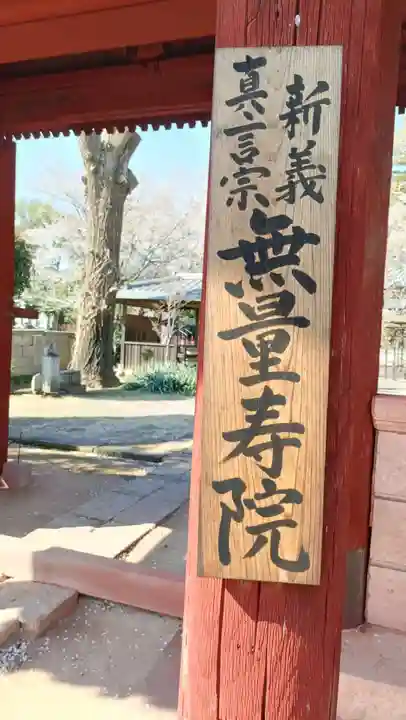 新義
真言宗
無量寿院